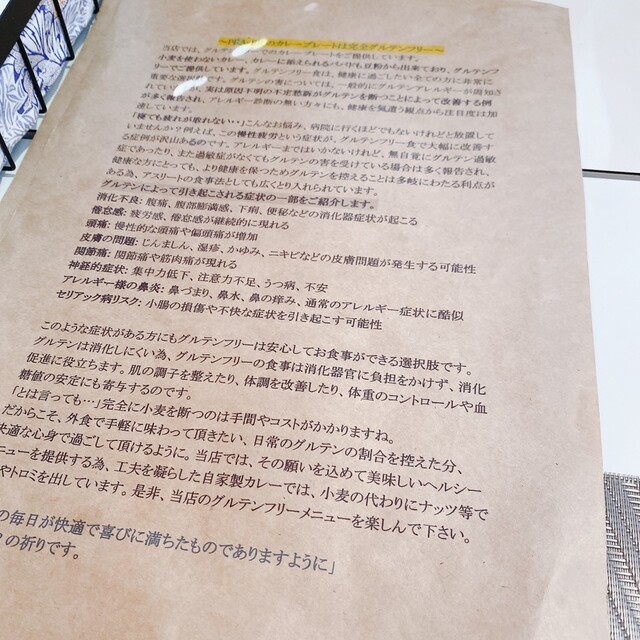 のカレープレートは完全グルテンフリー～
当店では、グルテンでのカレープレートをご提供しています。
小麦を使わないカレー、カレーに添えられるパパドも豆粉から出来ており、グルテンフ
リーでご提供しています。グルテンフリー食は、健康に過ごしたい全ての方に非常に
重要な選択です。グルテンの害については、一般的にグルテンアレルギーが周知さ
れていますが、実は原因不明の不定愁訴がグルテンを断つことによって改善する例
が多く報告され、アレルギー診断の無い方々にも、健康を気遣う観点から注目度は加
速しています。
「寝ても疲れが取れない・・」こんなお悩み、病院に行くほどでもないけれどと放置して
いませんか？例えば、この慢性疲労という症状が、グルテンフリー食で大幅に改善す
る症例が沢山あるのです。アレルギーまではいかないけれど、無自覚にグルテン過敏
症であったり、また過敏症がなくてもグルテンの害を受けている場合は多く報告され、
健康な方にとっても、より健康を保つためグルテンを控えることは多岐にわたる利点が
ある為、アスリートの食事法としても広くとり入れられています。
グルテンによって引き起こされる症状の一部をご紹介します。
消化不良: 腹痛、腹部膨満感、下痢、便秘などの消化器症状が起こる
倦怠感: 疲労感、倦怠感が継続的に現れる
頭痛: 慢性的な頭痛や偏頭痛が増加
皮膚の問題: じんましん、湿疹、かゆみ、ニキビなどの皮膚問題が発生する可能性
関節痛: 関節痛や筋肉痛が現れる
神経的症状: 集中力低下、注意力不足、うつ病、不安
アレルギー様の鼻炎: 鼻づまり、鼻水、鼻の痒み、通常のアレルギー症状に酷似
セリアック病リスク: 小腸の損傷や不快な症状を引き起こす可能性
このような症状がある方にもグルテンフリーは安心してお食事ができる選択肢です。
グルテンは消化しにくい為、グルテンフリーの食事は消化器官に負担をかけず、消化
促進に役立ちます。肌の調子を整えたり、体調を改善したり、体重のコントロールや血
糖値の安定にも寄与するのです。
「とは言っても・・」完全に小麦を断つのは手間やコストがかかりますね。
だからこそ、外食で手軽に味わって頂きたい、日常のグルテンの割合を控えた分、
快適な心身で過ごして頂けるように。当店では、その願いを込めて美味しいヘルシー
ニューを提供する為、工夫を凝らした自家製カレーでは、小麦の代わりにナッツ等で
やトロミを出しています。是非、当店のグルテンフリーメニューを楽しんで下さい。
の毎日が快適で喜びに満ちたものでありますように」
の祈りです。